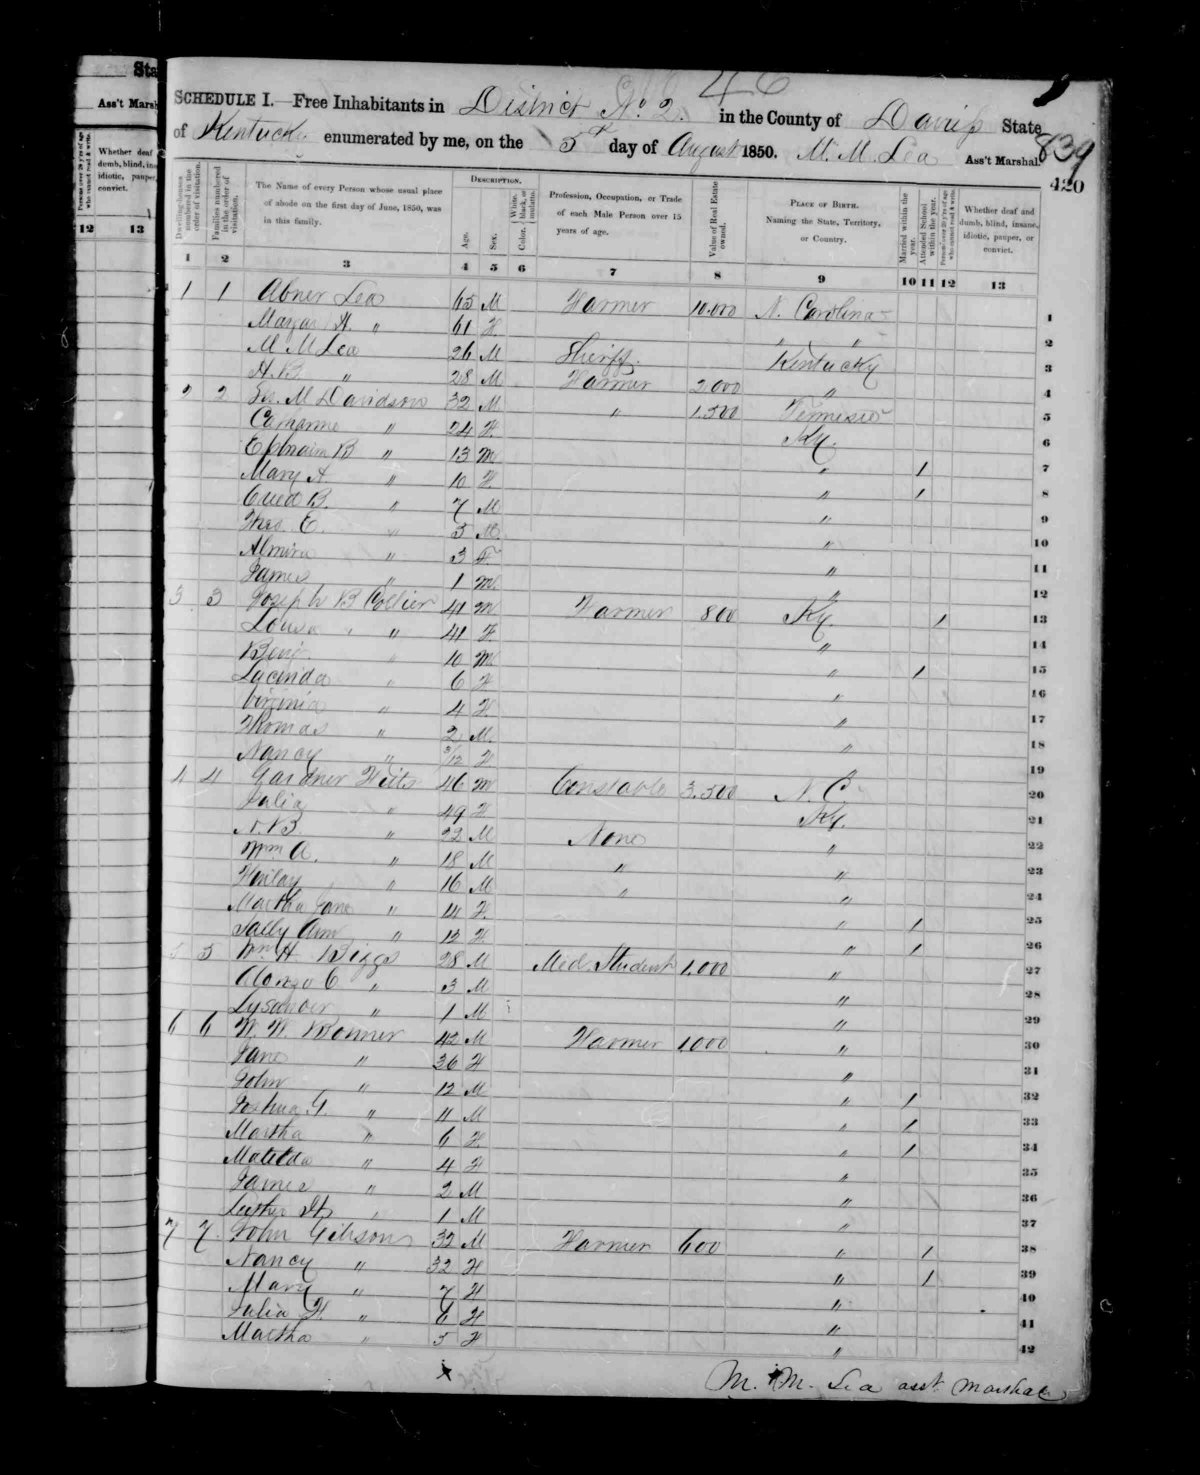 Sta
Ass't Marsh
Whether deaf
dumb, blind, ins
idiotic, pauper,
convict.
12 13
46
SCHEDULE I.—Free Inhabitants in District No 2. in the County of Daviess State
of Kentucky enumerated by me, on the 5th day of August 1850. M. M. Lea Ass't Marshal.
839
420
Dwelling-houses numbered in the order of visitation.
Families numbered in the order of visitation.
The Name of every Person whose usual place of abode on the first day of June, 1850, was in this family.
DESCRIPTION.
Age.
Sex.
Color. White, black, or mulatto.
Profession, Occupation, or Trade of each Male Person over 15 years of age.
Value of Real Estate owned.
PLACE OF BIRTH. Naming the State, Territory, or Country.
Married within the year.
Attended School within the year.
Persons over 20 y'rs of age who cannot read & write.
Whether deaf and dumb, blind, insane, idiotic, pauper, or convict.
1 2 3 4 5 6 7 8 9 10 11 12 13
1 1 Abner Lea 65 M Farmer 10.000 N. Carolina 1
H. " 61 F " " 2
M M Lea 26 M Sheriff Kentucky 3
H. B " 28 M Farmer 2000 " 4
2 2 M Davidson 32 M " 1.500 Tennessee 5
Catharine " 24 F Ky. 6
Ephraim B " 13 M " 1 7
Mary A. " 10 F " 1 8
B. " 7 M " 9
Thos. E. " 5 M " 10
Almira " 3 F " 11
James " 1 M " 12
3 3 Joseph B Collier 41 M Farmer 800 Ky. 1 13
Louisa " 41 F " 14
Benj. " 10 M " 1 15
Lucinda " 6 F " 16
Virginia " 4 F " 17
Thomas " 2 M " 18
Nancy " 3/12 F " 19
4 4 Gardner 46 M Constable 3.500 N. C. 20
Julia " 49 F Ky. 21
N. B " 22 M None " 22
Wm A. " 18 M " " 23
" 16 M " " 24
Martha Jane " 14 F " 1 25
Sally Ann " 12 F " 1 26
5 5 Wm H. Biggs 28 M Med. Student 1.000 " 27
Alonzo C " 3 M " 28
Lysander " 1 M " 29
6 6 W. W. Bonner 42 M Farmer 1000 " 30
Jane " 36 F " 31
John " 12 M " 1 32
Joshua G. " 11 M " 1 33
Martha " 6 F " 1 34
Matilda " 4 F " 35
James " 2 M " 36
Luther " 1 M " 37
7 7 John Gibson 32 M Farmer 600 " 1 38
Nancy " 32 F " 1 39
Mary " 7 F " 40
Julia F. " 6 F " 41
Martha " 5 F " 42
M. M. Lea asst. Marshal